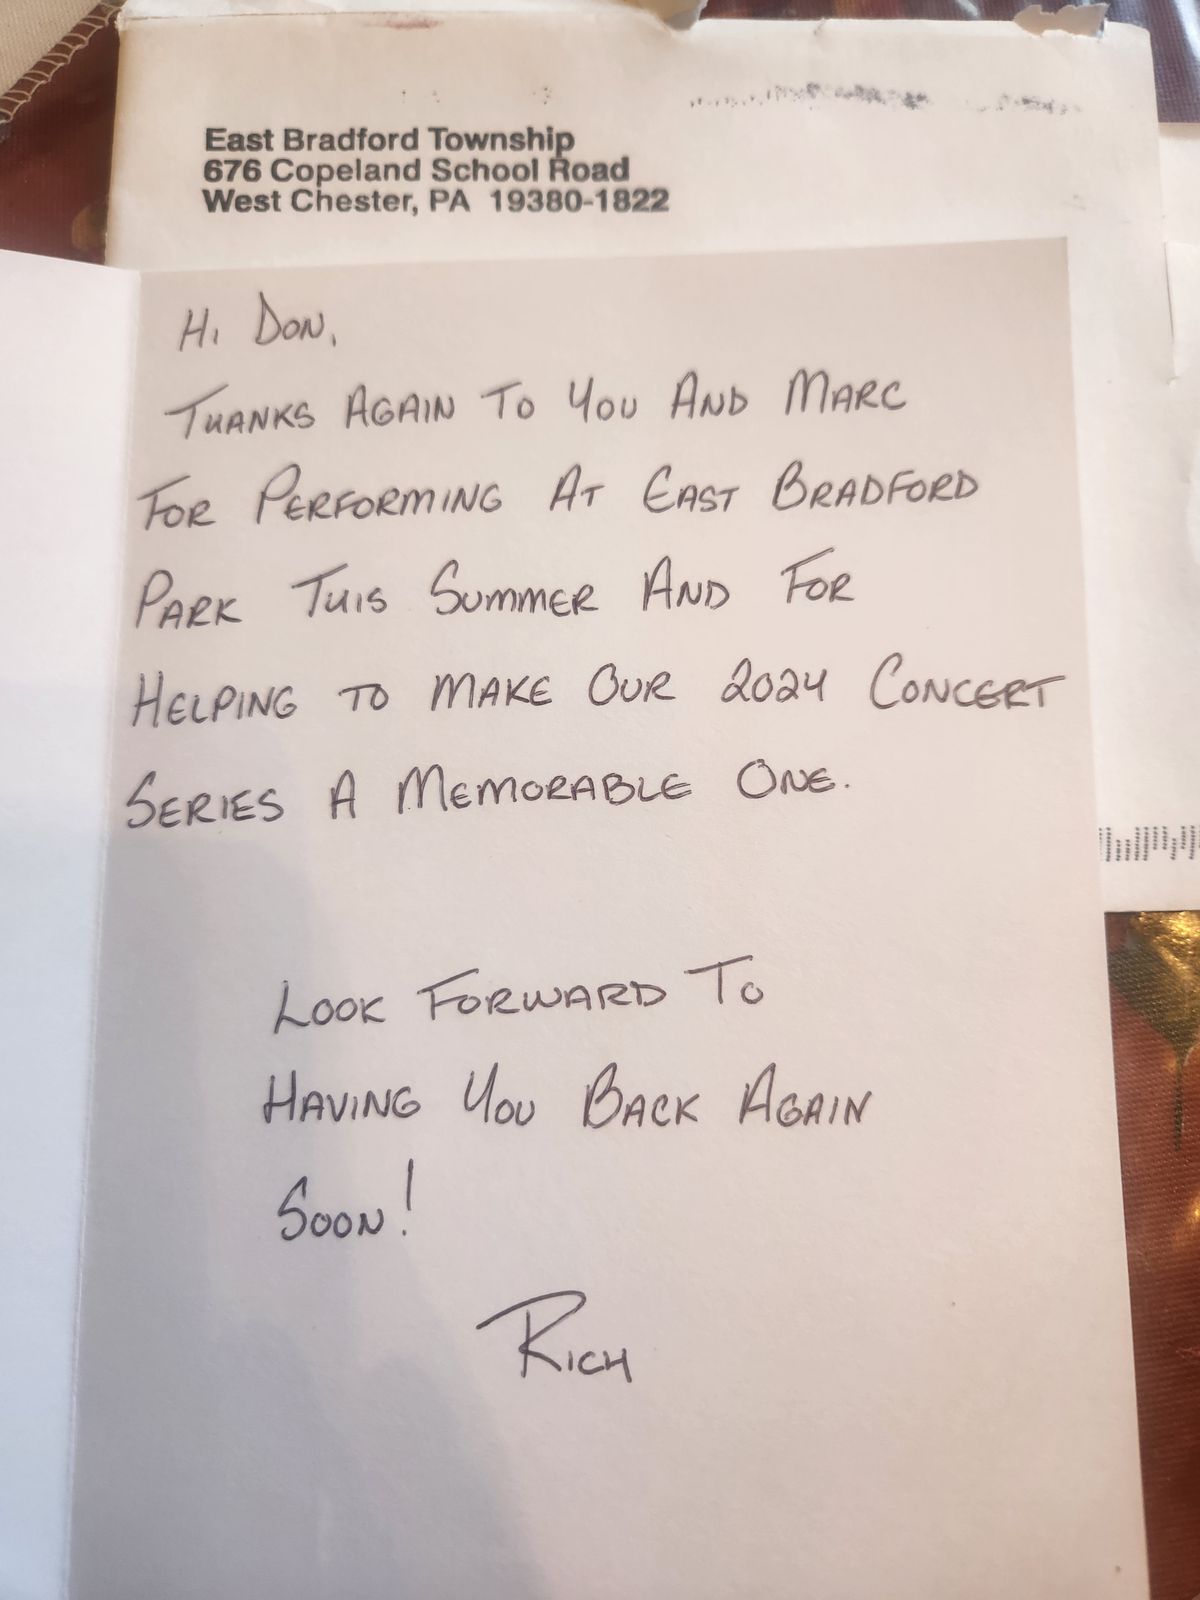 East Bradford Township
676 Copeland School Road
West Chester, PA 19380-1822
Hi Don,
Thanks Again To You And Marc
For Performing At East Bradford
Park This Summer And For
Helping to Make Our 2024 Concert
Series A Memorable One.
Look Forward To
Having You Back Again
Soon!
Rich